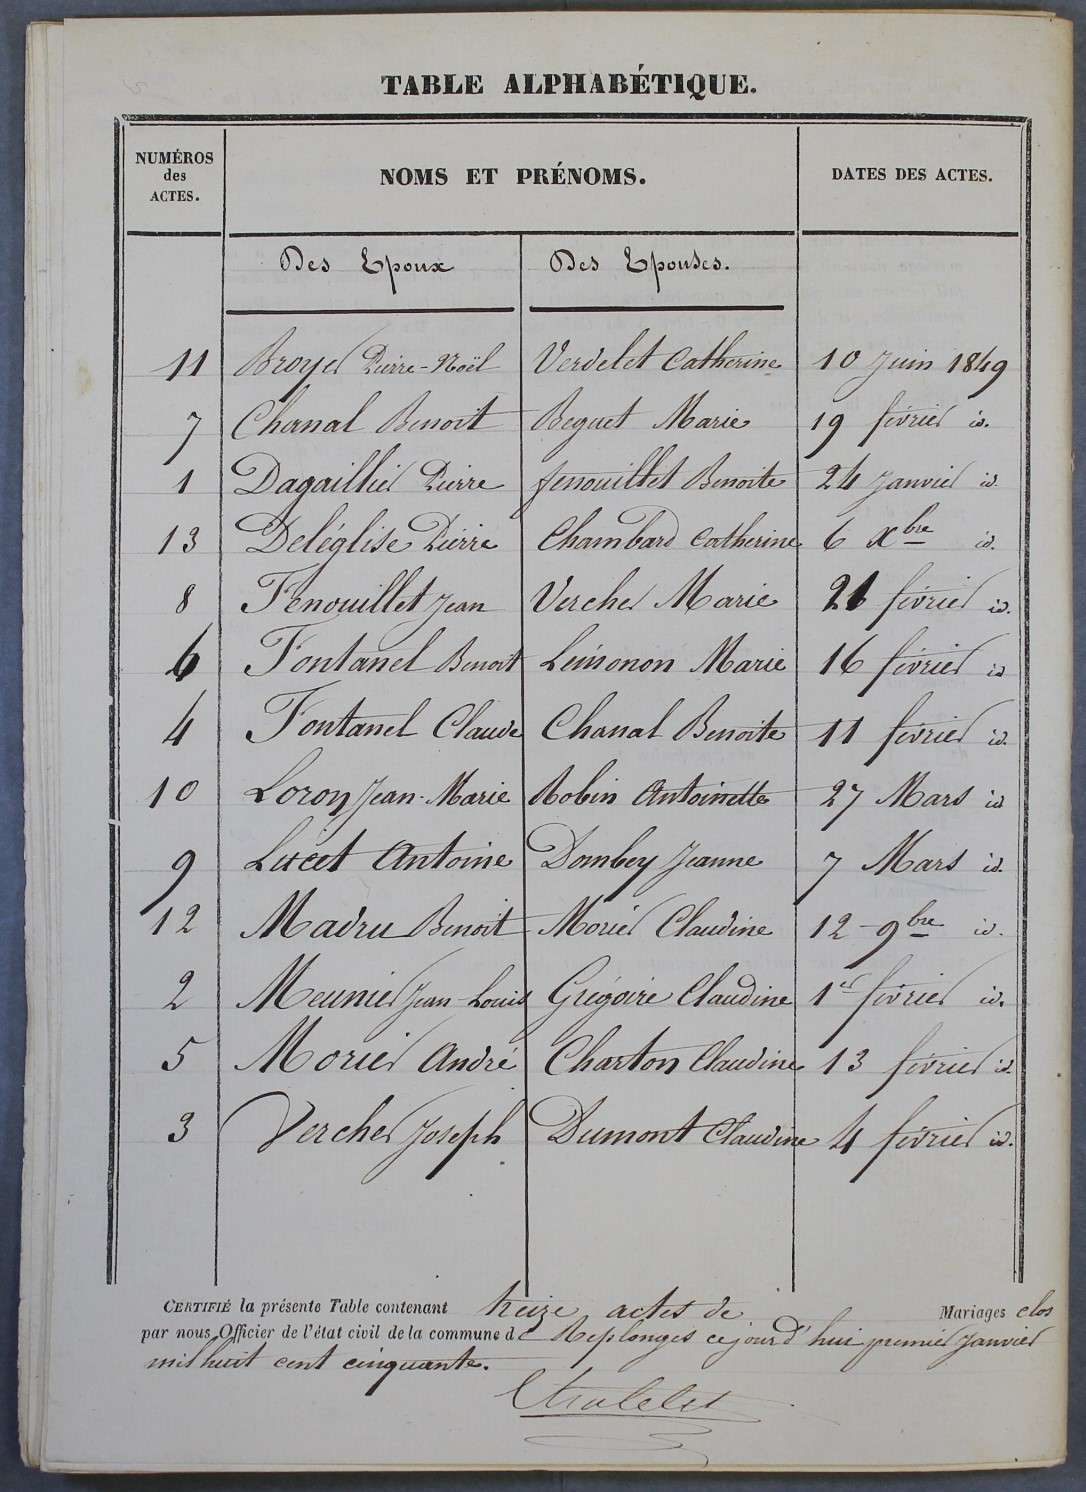 TABLE ALPHABÉTIQUE.
NUMÉROS des ACTES. NOMS ET PRÉNOMS. DATES DES ACTES.
Des Epoux Des Epouses.
11 Broyer Pierre-Noël Verdelet Catherine 10 Juin 1849
7 Chanal Benoit Beguet Marie 19 février id.
1 Dagaillier Pierre fenouillet Benoite 24 Janvier id.
13 Deléglise Pierre Chambard Catherine 6 Xbre id.
8 Fenouillet Jean Vercher Marie 21 février id.
6 Fontanel Benoit Marie 16 février id
4 Fontanel Claude Chanal Benoite 11 février id.
10 Loron Jean-Marie Robin Antoinette 27 Mars id
9 Antoine Dombey Jeanne 7 Mars id.
12 Madru Benoit Morier Claudine 12 9bre id.
2 Meunier Jean-Louis Grégoire Claudine 1er février id.
5 Morier André Charton Claudine 13 février id.
3 Vercher Joseph Dumont Claudine 4 février id.
CERTIFIÉ la présente Table contenant treize actes de Mariages clos
par nous Officier de l'état civil de la commune de Replonges ce jourd'hui premier Janvier
mil huit cent cinquante.